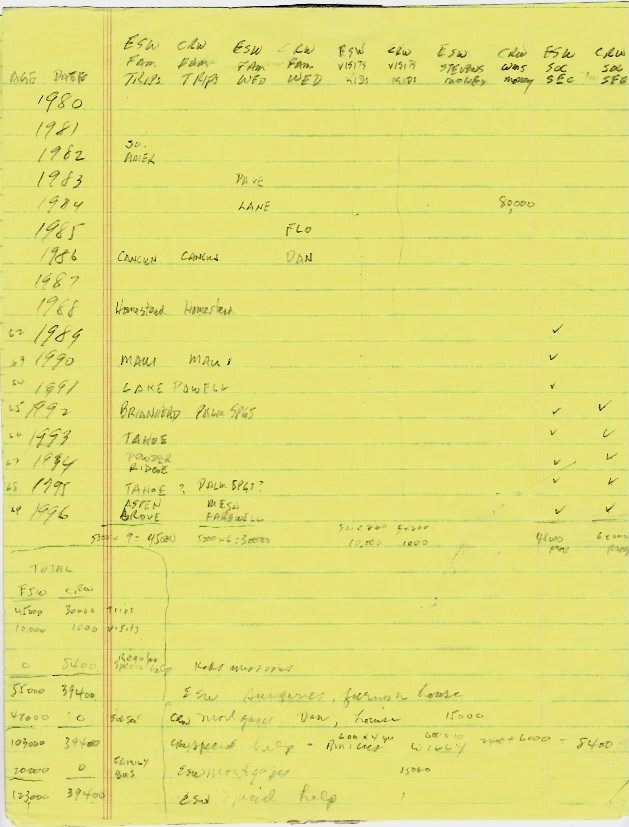 ESW CRW ESW CRW ESW CRW ESW CRW ESW CRW
FAM FAM FAM FAM VISITS VISITS STEVENS SOC SOC
AGE DATE TRIPS TRIPS WED WED KIDS KIDS MONEY MONEY SEC SEC
1980
1981
1982 SO. AMER
1983 DAVE
1984 LANE 80,000
1985 FLO
1986 CANCUN CANCUN DAN
1987
1988 Homestead Homestead
62 1989 ✓
1990 MAUI MAUI ✓
1991 LAKE POWELL ✓
65 1992 BRIANHEAD PALM SPGS ✓ ✓
1993 TAHOE ✓ ✓
67 1994 POWDER RIDGE ✓ ✓
68 1995 TAHOE ? PALM SPGS? ✓ ✓
69 1996 ASPEN GROVE FAREWELL ✓ ✓
5000 x 9 = 45000 5000 x 6 = 30000 10,000 1000
TOTAL
ESW CRW
45000 30000 Trips
10,000 1000 visits
0 8400 Regular Special help Kids missions
55000 39400 ESW Surgeries, furnish house
48000 0 Soc Sec CRW mortgages Dan, house 15000
103000 39400 CRW special help - 600 x 4 600 x 10 + 6000 = 8400
20000 0 FAMILY ESW mortgages 15000
123,000 39400 ESW special help